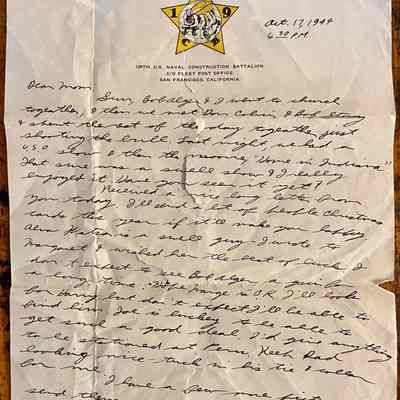 1 9
Oct. 17, 1944
6:30 P.M.
129TH U.S. NAVAL CONSTRUCTION BATTALION
C/O FLEET POST OFFICE
SAN FRANCISCO, CALIFORNIA
Dear Mom,
Sun, Bob & I went to church
together, & then we met Don & Bob
& spent the rest of the day together just
shooting the bull. Last night, we had a
U.S.O show & then the movie, "Home in Indiana"
That sure was a swell show & I really
enjoyed it. Have you see it yet?
Received a nice long letter from
you today. I'll send a lot of people Christmas
cards this year if it'll make you happy.
is a swell guy. I wrote to
Margaret & wished her the best of luck. I
don't expect to see Bob again for
a long time. Hope Marge is O.K. I'll look
for but don't expect I'll be able to
find him. Joe is lucky to be able to
get such a good deal. I'd give anything
to be stationed at Keep Dad
looking nice tuck in his tie & collar
for me.
I have a few more
send them